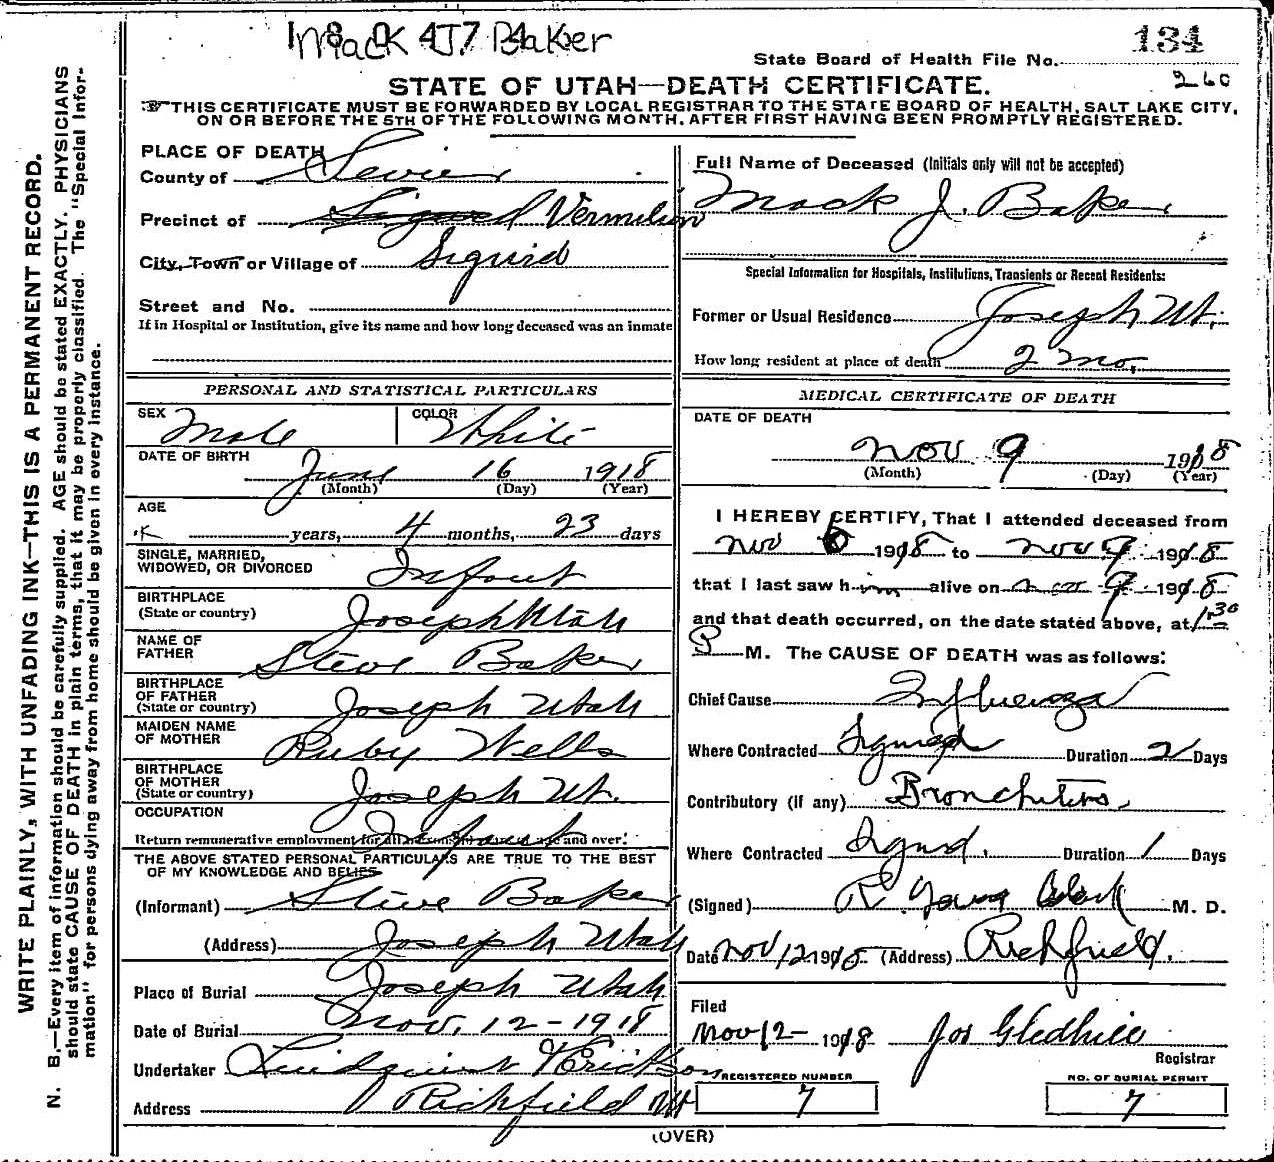 Mack J. Baker
134
State Board of Health File No.
260
STATE OF UTAH—DEATH CERTIFICATE.
THIS CERTIFICATE MUST BE FORWARDED BY LOCAL REGISTRAR TO THE STATE BOARD OF HEALTH, SALT LAKE CITY,
ON OR BEFORE THE 5TH OF THE FOLLOWING MONTH, AFTER FIRST HAVING BEEN PROMPTLY REGISTERED.
WRITE PLAINLY, WITH UNFADING INK—THIS IS A PERMANENT RECORD.
N. B.—Every item of information should be carefully supplied. AGE should be stated EXACTLY. PHYSICIANS
should state CAUSE OF DEATH in plain terms, that it may be properly classified. The "Special Infor-
mation" for persons dying away from home should be given in every instance.
PLACE OF DEATH
County of Sevier
Precinct of Sigurd Vermilion
City, Town or Village of Sigurd
Street and No.
If in Hospital or Institution, give its name and how long deceased was an inmate
PERSONAL AND STATISTICAL PARTICULARS
SEX Male COLOR White
DATE OF BIRTH
June 16 1918
(Month) (Day) (Year)
AGE
years, 4 months, 23 days
SINGLE, MARRIED,
WIDOWED, OR DIVORCED Infant
BIRTHPLACE
(State or country) Joseph Utah
NAME OF
FATHER Steve Baker
BIRTHPLACE
OF FATHER
(State or country) Joseph Utah
MAIDEN NAME
OF MOTHER Ruby Wells
BIRTHPLACE
OF MOTHER
(State or country) Joseph Ut.
OCCUPATION
Return remunerative employment for all persons age and over. Infant
THE ABOVE STATED PERSONAL PARTICULARS ARE TRUE TO THE BEST
OF MY KNOWLEDGE AND BELIEF
(Informant) Steve Baker
(Address) Joseph Utah
Place of Burial Joseph Utah
Date of Burial Nov. 12-1918
Undertaker Lindquist & Erickson
Address Richfield Ut
Full Name of Deceased (Initials only will not be accepted)
Mack J. Baker
Special Information for Hospitals, Institutions, Transients or Recent Residents:
Former or Usual Residence Joseph Ut.
How long resident at place of death 2 mo.
MEDICAL CERTIFICATE OF DEATH
DATE OF DEATH
Nov 9 1918
(Month) (Day) (Year)
I HEREBY CERTIFY, That I attended deceased from
Nov 6 1918 to Nov 9 1918
that I last saw him alive on Nov 9 1918
and that death occurred, on the date stated above, at 1:30
P M. The CAUSE OF DEATH was as follows:
Chief Cause Influenza
Where Contracted Sigurd Duration 2 Days
Contributory (if any) Bronchitis
Where Contracted Sigurd. Duration 1 Days
(Signed) R. M. D.
Date Nov 12 1918 (Address) Richfield.
Filed
Nov 12- 1918 Jos Gledhill
Registrar
REGISTERED NUMBER
7
NO. OF BURIAL PERMIT
7
(OVER)